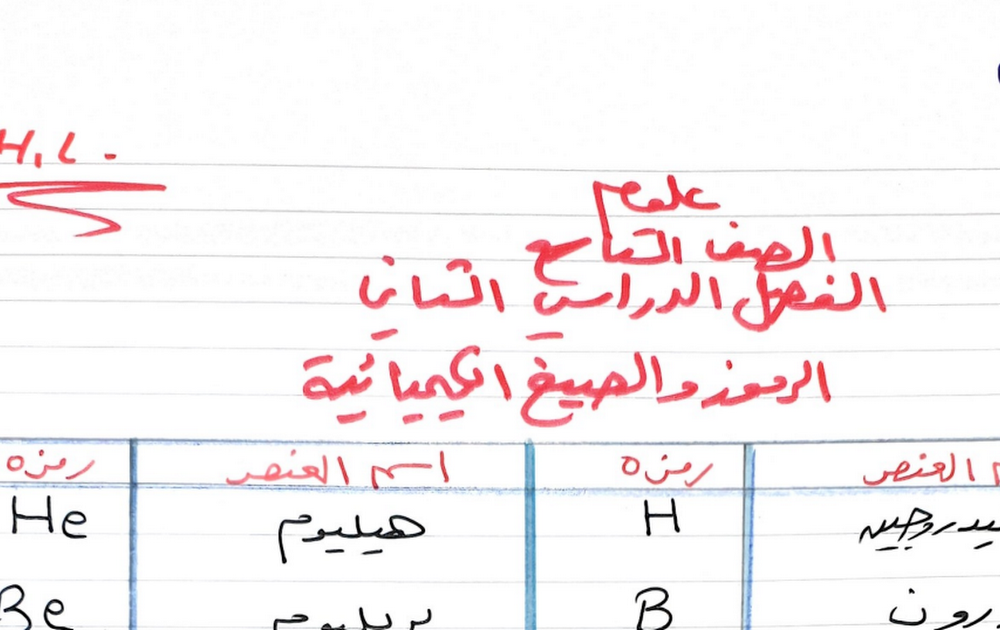 H.L.
علوم
الصف التاسع
الفصل الدراسي الثاني
الرموز والصيغ الكيميائية
العنصر رمزه اسم العنصر رمزه
H هيليوم He
B بريليوم Be